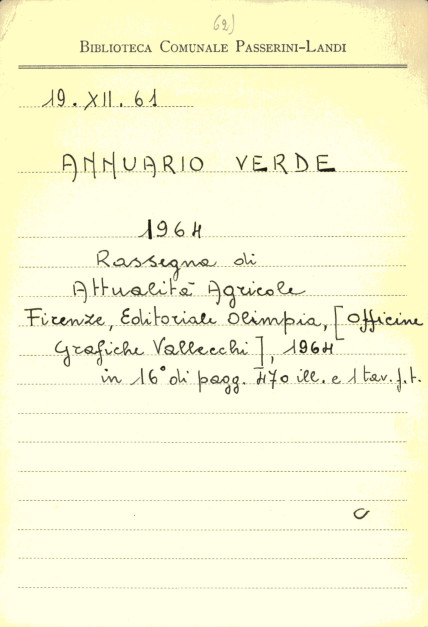 62)
BIBLIOTECA COMUNALE PASSERINI-LANDI
19. XII. 61
ANNUARIO VERDE
1964
Rassegna di
Attualità Agricole
Firenze, Editoriale Olimpia, [Officine
Grafiche Vallecchi], 1964
in 16° di pagg. 470 ill. e 1 tav. f. t.